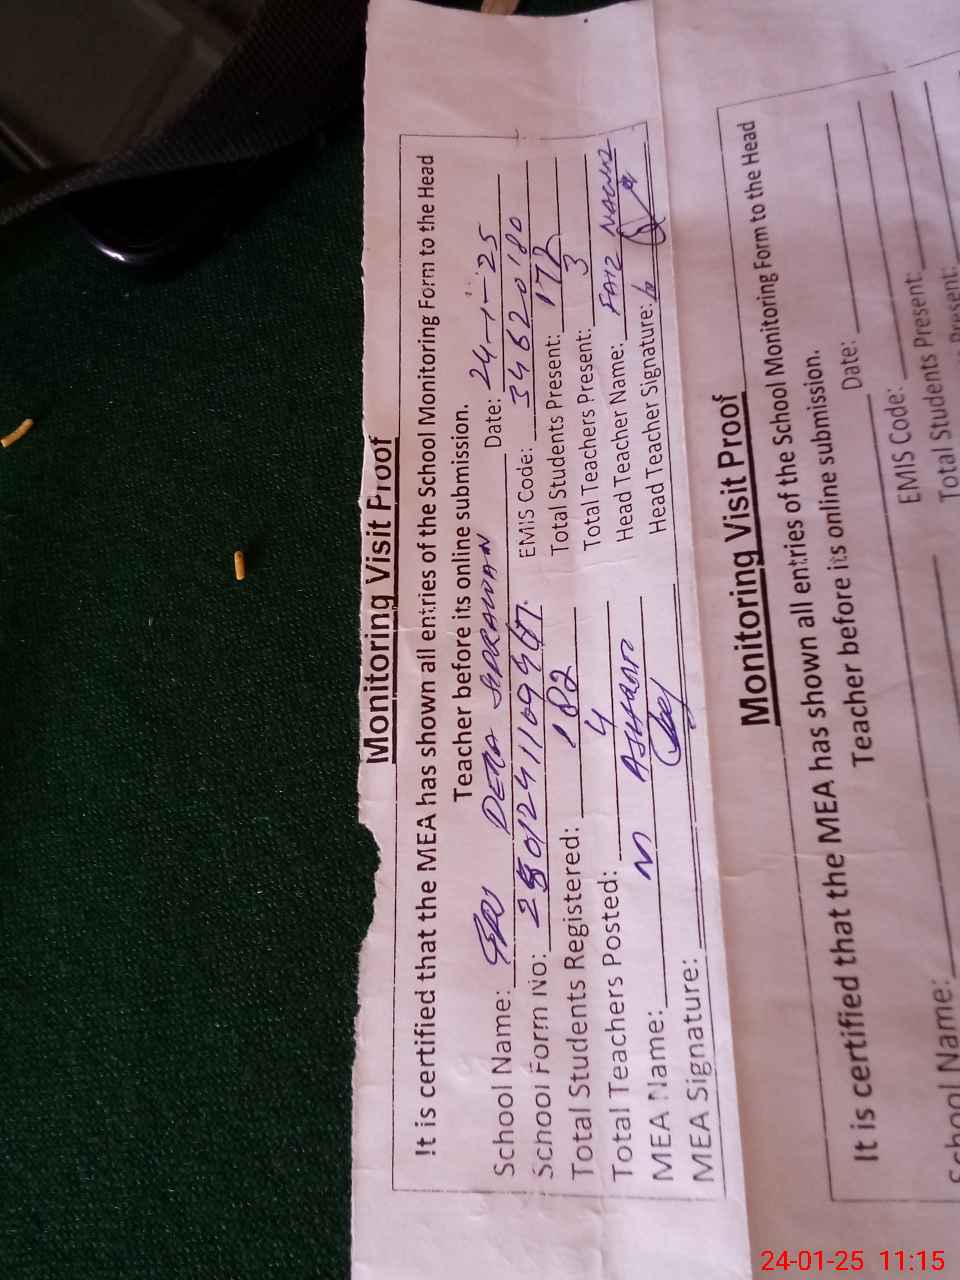 Monitoring Visit Proof
It is certified that the MEA has shown all entries of the School Monitoring Form to the Head
Teacher before its online submission.
School Name: DERA Date: 24-1-25
School Form No: EMIS Code: 34620180
Total Students Registered: 182 Total Students Present: 172
Total Teachers Posted: 4 Total Teachers Present: 3
MEA Name: M Head Teacher Name: FAIZ
MEA Signature: Head Teacher Signature:
Monitoring Visit Proof
It is certified that the MEA has shown all entries of the School Monitoring Form to the Head
Teacher before its online submission.
School Name: Date:
EMIS Code:
Total Students Present:
Present:
24-01-25 11:15